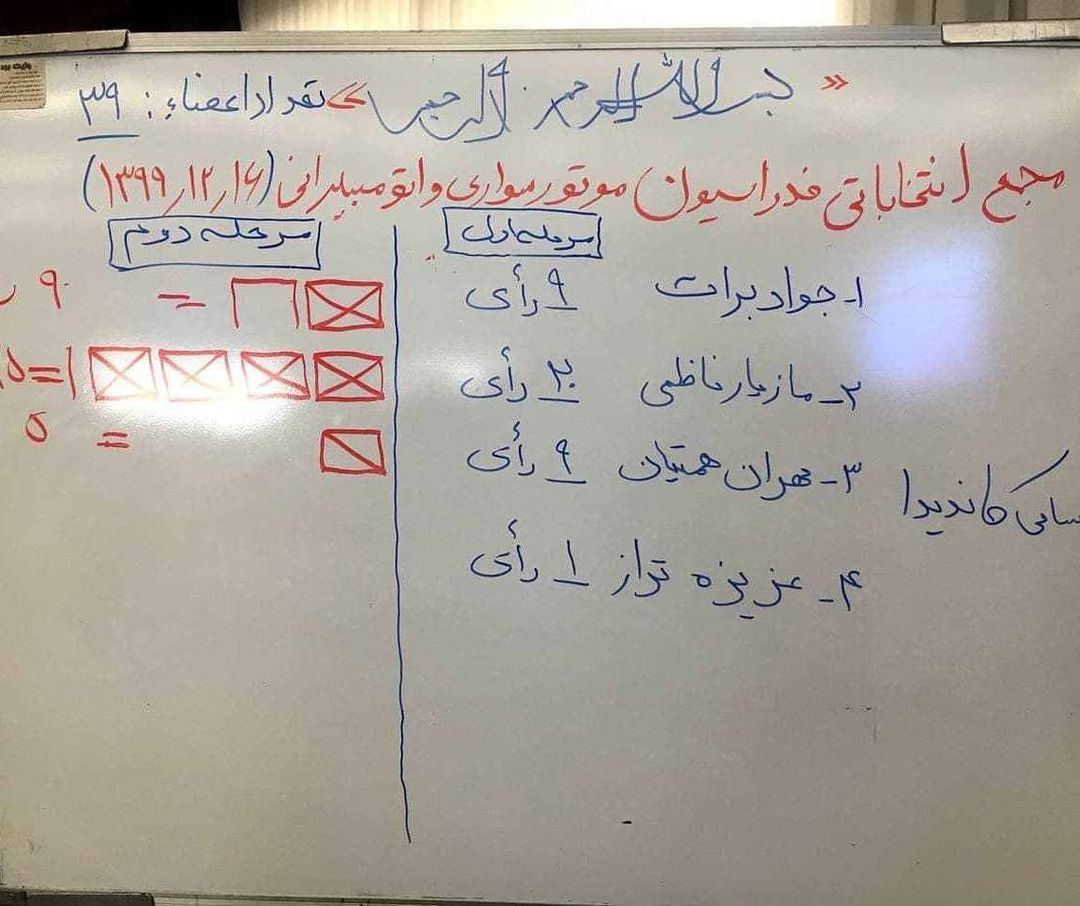 « بسم الله الرحمن الرحیم » تعداد اعضاء: ۳۹
مجمع انتخاباتی فدراسیون موتورسواری و اتومبیلرانی (۱۳۹۹٫۱۲٫۱۶)
مرحله اول
مرحله دوم
۱ـ جواد برات ۹ رأی
= ۹
۲ـ مازیار ناظمی ۲۰ رأی
۳ـ مهران همتیان ۹ رأی
= ۵
کاندیدا
۴ـ عزیزه تراز ۱ رأی